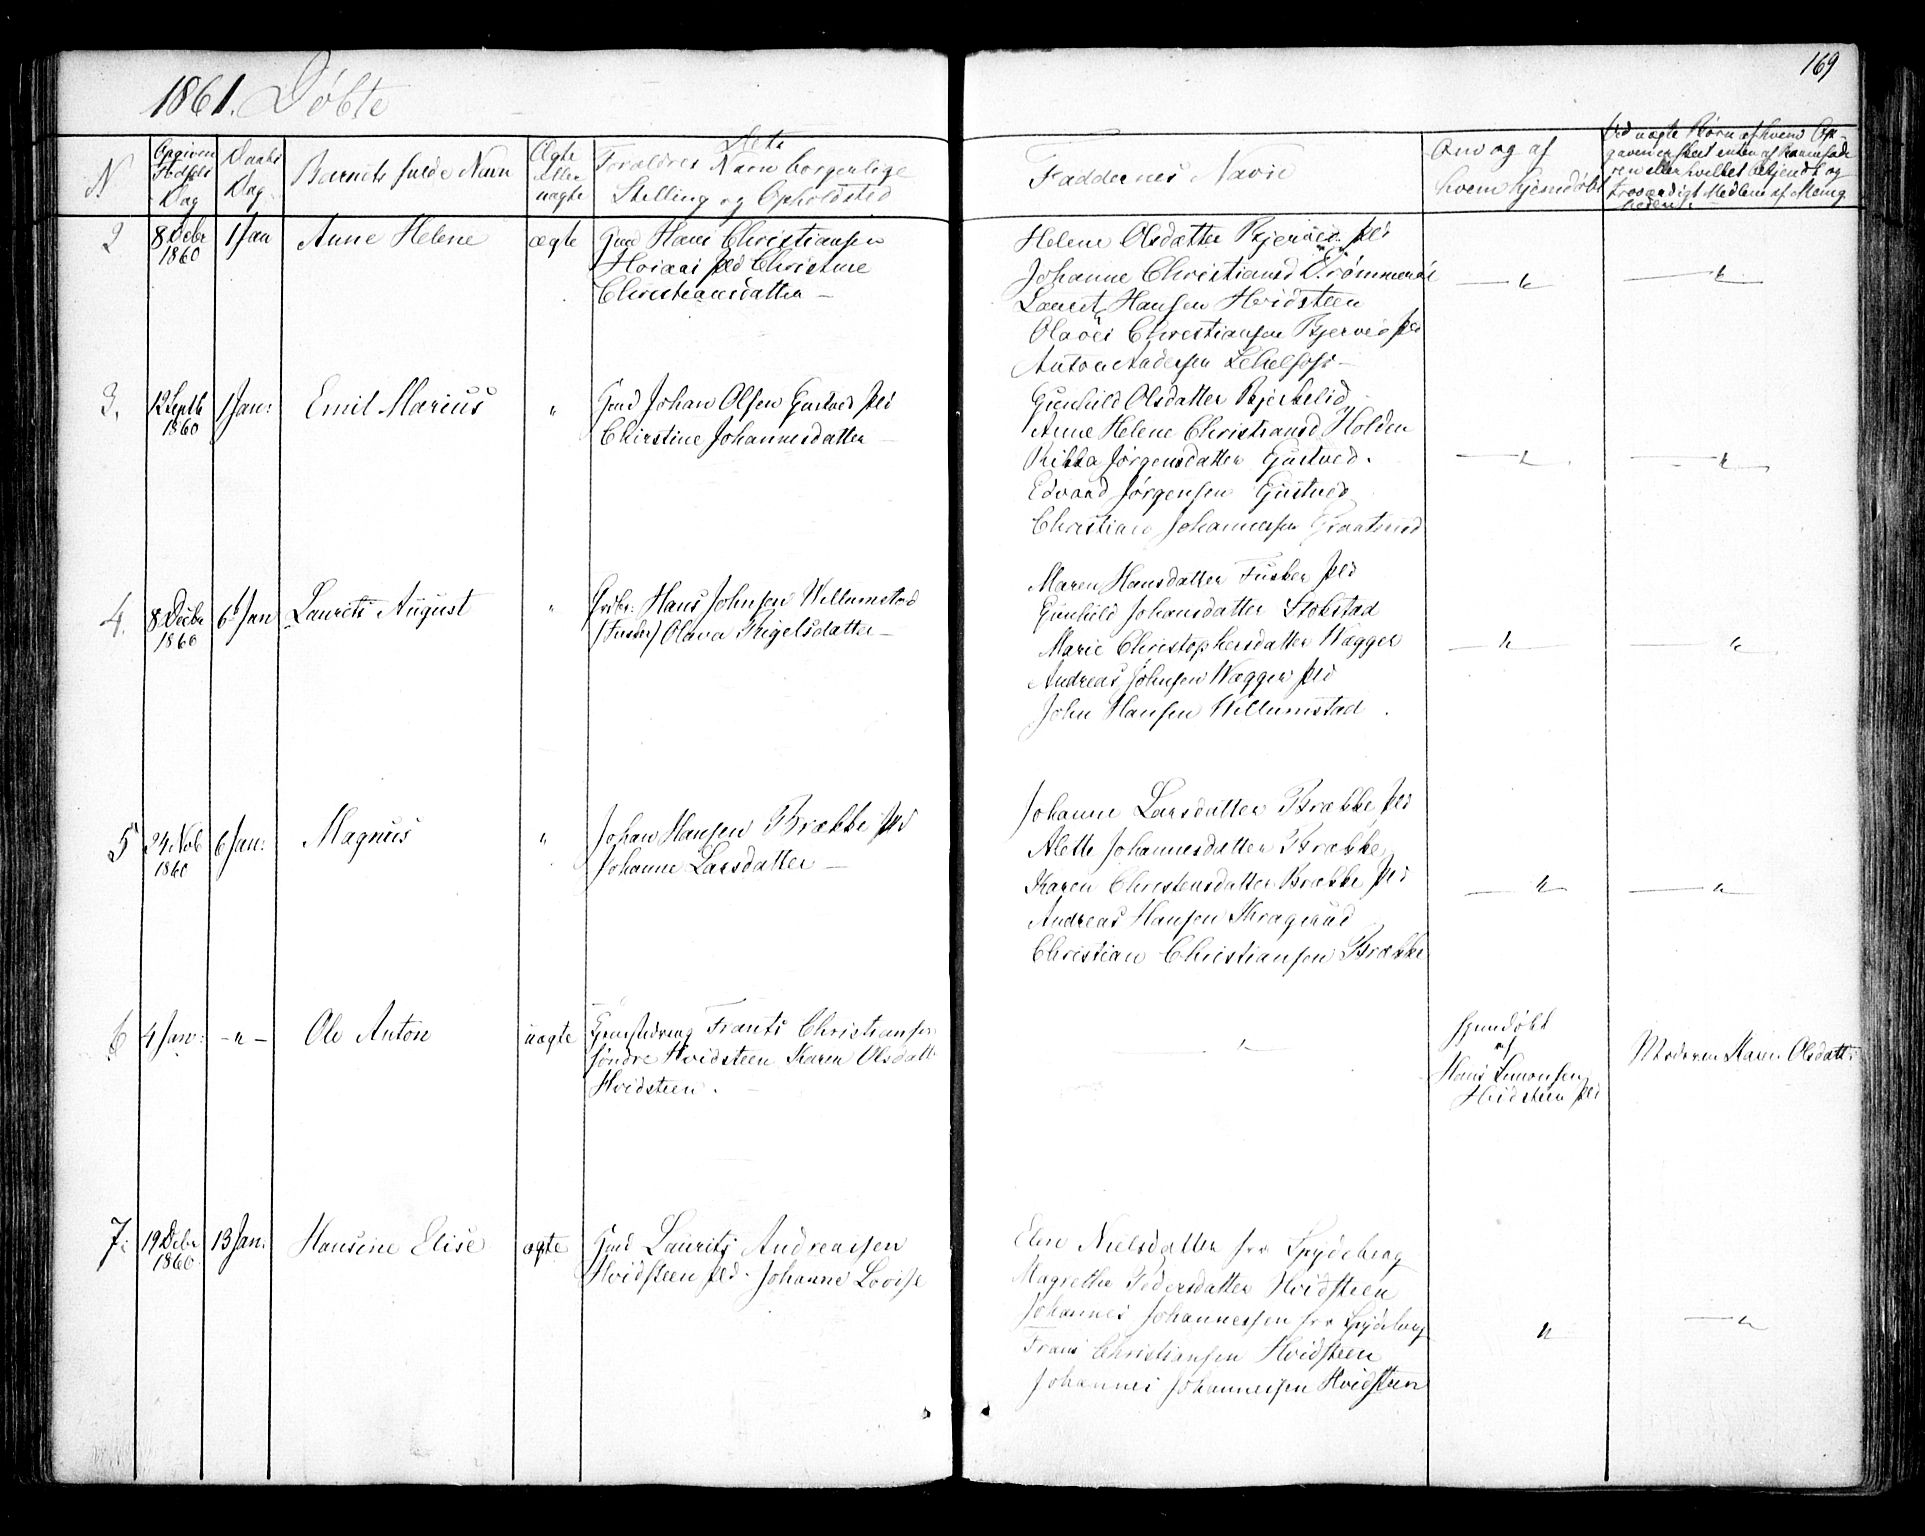 169
1861. Døbte
N
Opgiven
Fødsels
Dag
Daabs
Dag
Barnets fulde Navn
Ægte
Eller
uægte
Forældres Navn borgerlige
Stilling og Opholdsted
Faddernes Navne
Om og af
hvem hjemdøbt
Ved uægte Børn af hvem Op-
2
8 Decbr
1860
1 Jan
Anne Helene
ægte
Gmd Hans Christiansen
Christine
Christiansdatter —
Helene Olsdatter
Johanne Christiansd
Laurits Hansen Hvidsteen
Christiansen
Anton Andersen
— " —
— "
3.
12 Septb
1860
1 Jan:
Emil Marius
"
Gmd Johan Olsen Gustved pld
Christine Johannesdatter —
Gunhild Olsdatter Bjerkelid
Anne Helene Christiansd Holden
Rikka Jørgensdatter Gustved.
Edvard Jørgensen Gustved
Christian Johannessen
— " —
— " —
4.
8 Decbr
1860
6 Jan
Laurits August
"
Hans Johnsen Willumstad
Olava
Maren Hansdatter Fusker pld
Gunhild Johansdatter Stokstad
Marie Christophersdatter Wægger
Andreas Johnsen Wægger pld
John Hansen Willumstad.
— " —
— " —
5
24 Nob
1860
6 Jan:
Magnus
"
Johan Hansen Brække pld
Johanne Larsdatter —
Johanne Larsdatter Brække pld
Alette Johannesdatter Brække
Karen Christensdatter Brække pld
Andreas Hansen Kragerud
Christian Christiansen Brække
— " —
— " —
6
4 Jan:
— " —
Ole Anton
uægte
Frants Christiansen
søndre Hvidsteen Karen Olsdatt
Hvidsteen.
— "
Hjemdøbt
af
Hans Simonsen
Hvidsteen pld
Moderen Karen Olsdatt
7.
19 Decbr
1860
13 Jan.
Hansine Elise
ægte
Gmd Laurits Andreassen
Hvidsteen pld. Johanne Lovise
Elen Nielsdatter fra Spydeberg
Magrethe Pedersdatter Hvidsteen
Johannes Johannessen fra Spydeberg
Frans Christiansen Hvidsteen
Johannes Johannessen Hvidsteen
"
— "